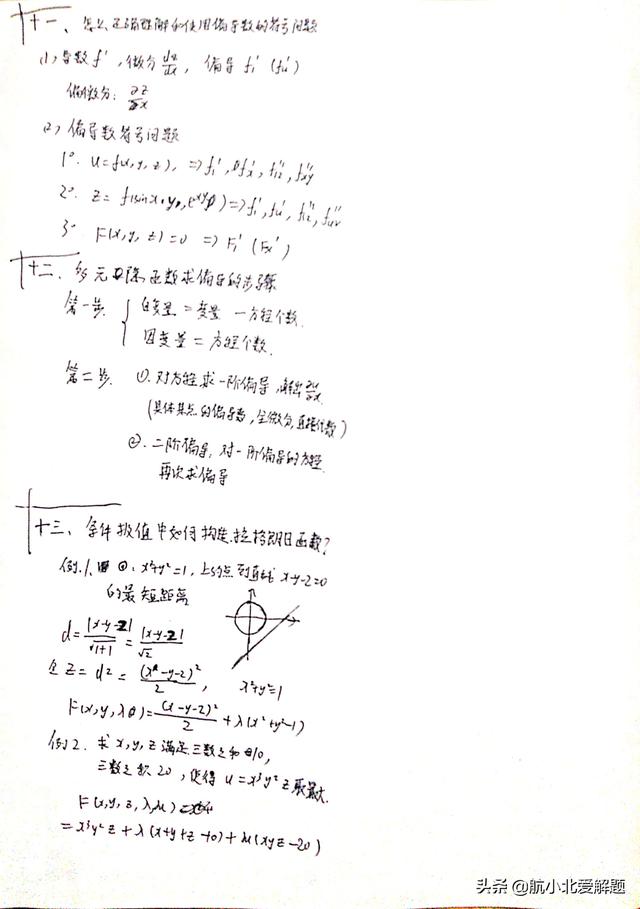 十一、怎么正确理解和使用偏导数的符号问题
(1) 导数 f', 微分 dz/dx, 偏导 f₁' (fu')
偏微分: ∂z/∂x
(2) 偏导数符号问题
1°. u=f(x,y,z), ⇒f₁', fx', f₁₂'', fxy''
2°. z= f(sinx+y, e^xy)⇒f₁', fu', f₁₂'', fuv''
3° F(x,y,z)=0 ⇒ F₁' (Fx')
十二、多元隐函数求偏导的步骤
第一步. { 自变量 = 变量 - 方程个数.
因变量 = 方程个数.
第二步. ①. 对方程求一阶偏导, 解出∂u/∂x.
(具体某点的偏导数, 全微分, 直接代数)
②. 二阶偏导, 对一阶偏导的方程
再次求偏导
十三、条件极值中如何构造拉格朗日函数?
例1. x²+y²=1, 上的点到直线 x-y-2=0
的最短距离
d=|x-y-2|/√1+1 = |x-y-2|/√2
令 z= d² = (x-y-2)²/2, x²+y²=1
F(x,y,λ)=(x-y-2)²/2 +λ(x²+y²-1)
例2. 求 x,y,z 满足三数之和10,
三数之积 20, 使得 u=x³y²z 取最大.
F(x,y,z,λ,μ)
=x³y²z+λ(x+y+z-10)+μ(xyz-20)
头条 @航小北爱解题